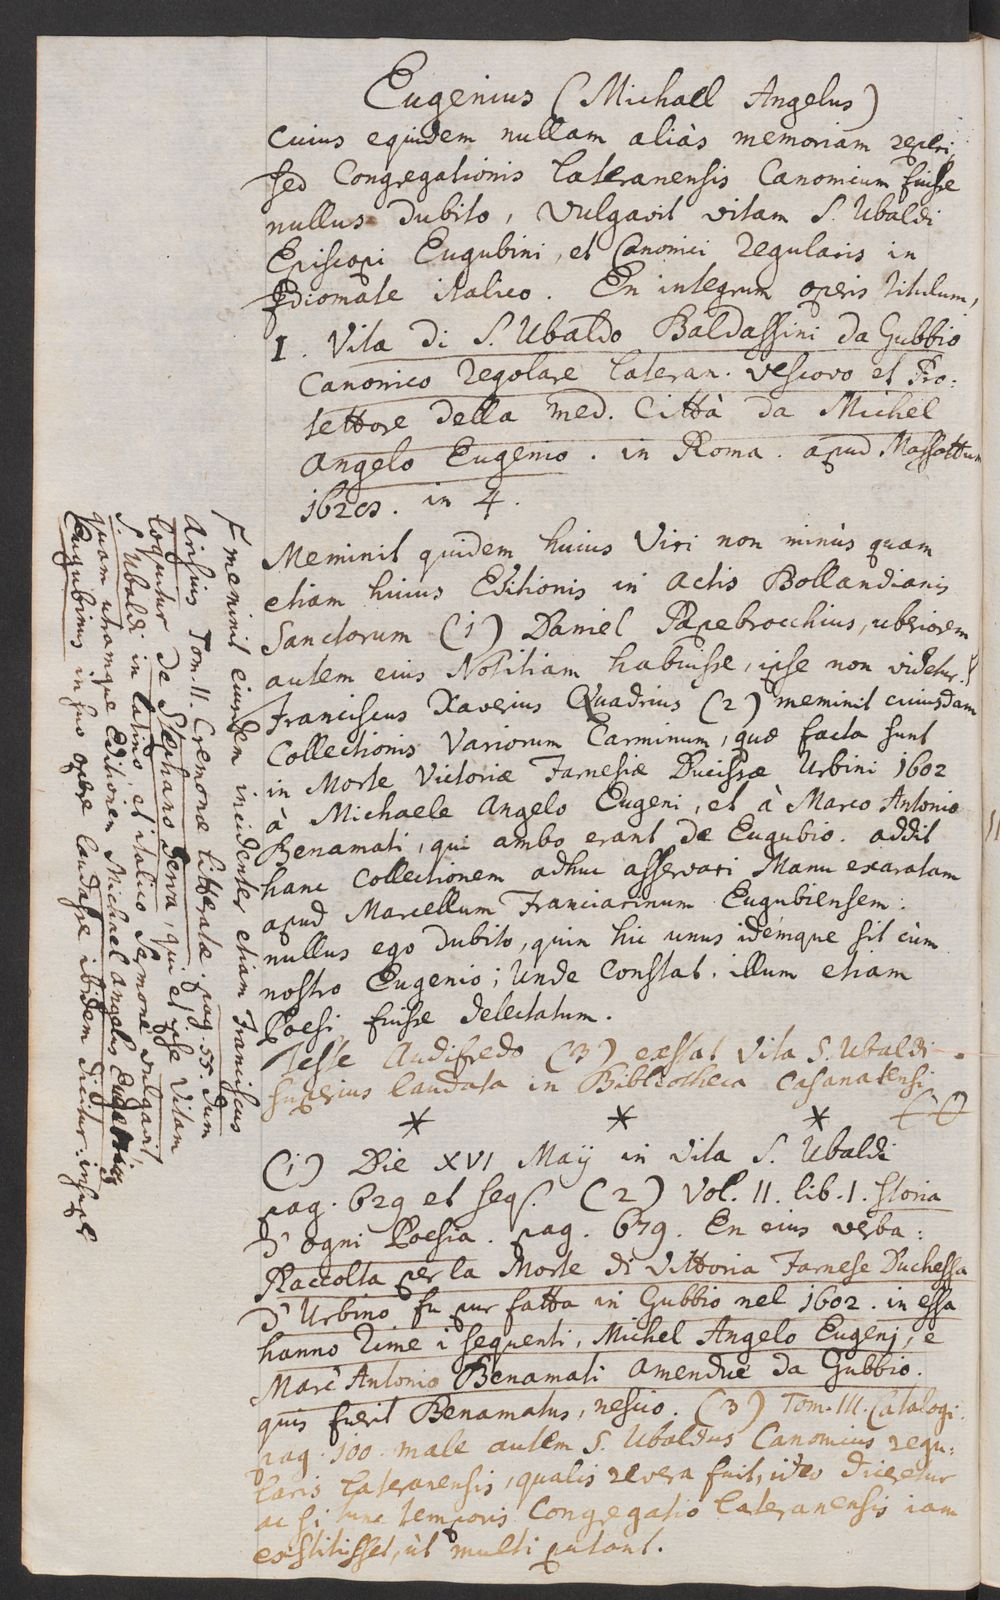 Eugenius (Michael Angelus)
cuius equidem nullam aliàs memoriam reperi,
sed Congregationis Lateranensis Canonicum fuisse
nullus dubito, vulgavit vitam S. Ubaldi
Episcopi Eugubini, et Canonici Regularis in
Idiomate italico. En integrum operis titulum,
I. Vita di S. Ubaldo Baldassini da Gubbio
Canonico Regolare Lateran. vescovo et Pro:
tettore della med. Città da Michel
Angelo Eugenio. in Roma. apud Massottum
in 4.
Meminit quidem huius Viri non minùs quam
etiam huius Editionis in Actis Bollandianis
Sanctorum (1) Daniel Papebrocchius, uberiorem
autem eius Notitiam habuisse, ipse non videtur.
Franciscus Xaverius Quadrius (2) meminit cuiusdam
Collectionis Variorum Carminum, quæ facta sunt
in Morte Victoriæ Farnesiæ Ducissæ Urbini 1602
à Michaele Angelo Eugeni, et à Marco Antonio
Benamati, qui ambo erant de Eugubio. addit
hanc Collectionem adhuc asservari Manu exaratam
apud Marcellum Franciarinum Eugubiensem:
nullus ego dubito, quin hic unus idémque sit cùm
nostro Eugenio; Unde Constat. illum etiam
Poesi fuisse delectatum.
Teste Audifredo (3) exstat Vita S. Ubaldi
superius laudata in Bibliotheca Casanatensi
* * *
(1) Die XVI Maÿ in Vita S. Ubaldi
pag. 629 et seqs. (2) Vol. II. lib. I. storia
d'ogni Poesia. pag. 679. En eius verba:
Raccolta per la Morte di Vittoria Farnese Duchessa
d'Urbino fu pur fatta in Gubbio nel 1602. in essa
hanno Rime i sequenti, Michel Angelo Eugenj, e
Marc' Antonio Benamati amendue da Gubbio.
quis fuerit Benamatus, nescio. (3) Tom. III. Catalogi.
pag. 100. male autem S. Ubaldus Canonicus regu:
laris Lateranensis, qualis revera fuit, ideo diceretur
ac si tunc temporis Congregatio Lateranensis iam
exstitisset, ùt multi putant.
meminit eiusdem incidenter etiam Franciscus
Arisius Tom. II. Cremonæ litteratæ. pag. 55. dum
loquitur de Stephano Serra, qui et ipse Vitam
S. Ubaldi in latino, et italico Sermone vulgavit,
quam utramque Editionem Michael Angelus Eugenius
Eugubinus in suo opere laudasse ibidem dicitur.